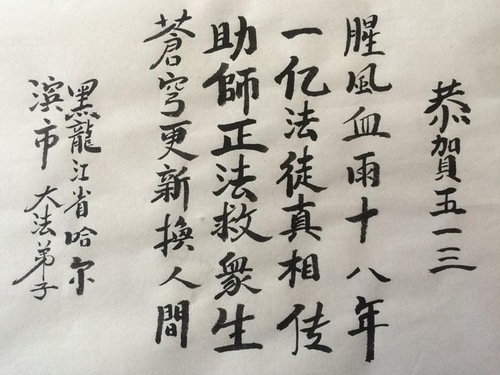 恭賀五一三
腥風血雨十八年
一亿法徒真相传
助師正法救眾生
蒼穹更新換人間
黑龍江省哈尔
滨市 大法弟子